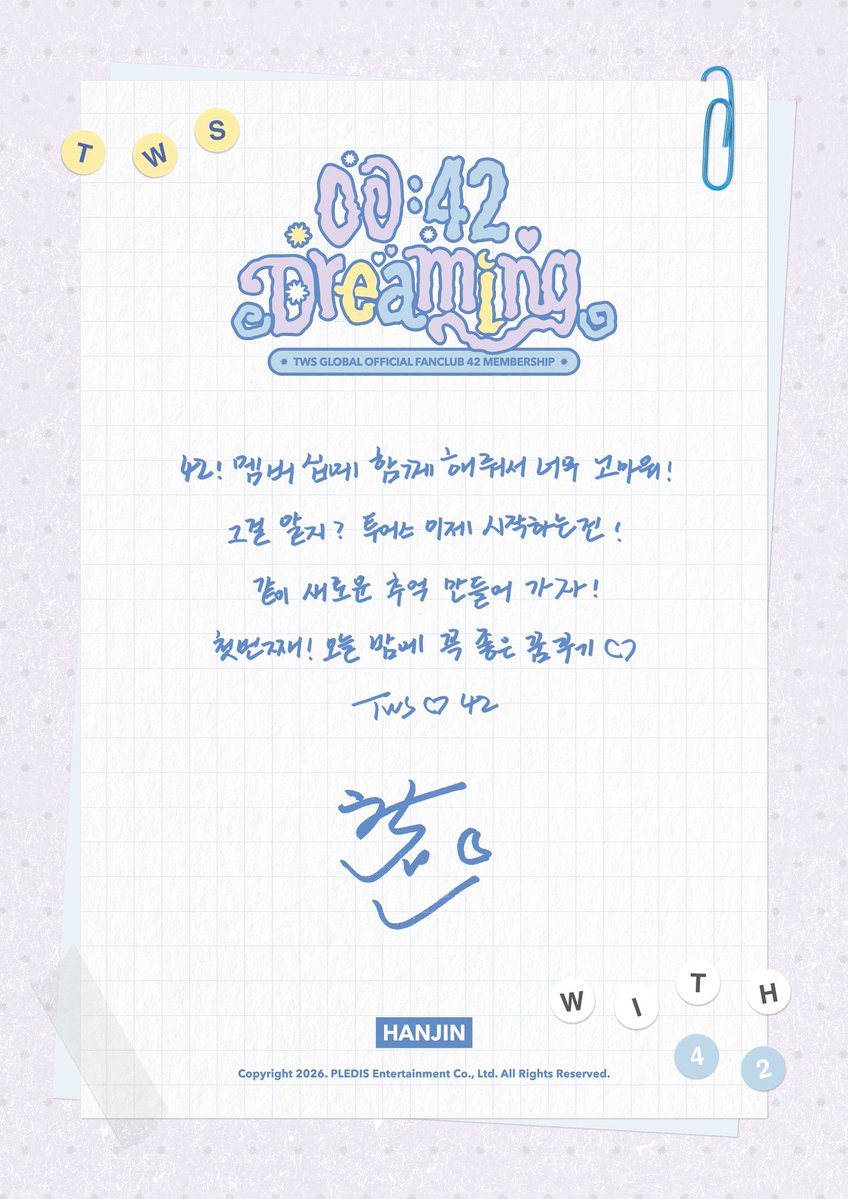 TWS
00:42
Dreaming
TWS GLOBAL OFFICIAL FANCLUB 42 MEMBERSHIP
42! 멤버 쉽에 함께 해줘서 너무 고마워!
그걸 알지? 투어스 이제 시작하는 전!
같이 새로운 추억 만들어 가자!
첫번째! 오늘 밤에 꼭 좋은 꿈 꾸기 ♡
TWS ♡ 42
WITH
42
HANJIN
Copyright 2026. PLEDIS Entertainment Co., Ltd. All Rights Reserved.